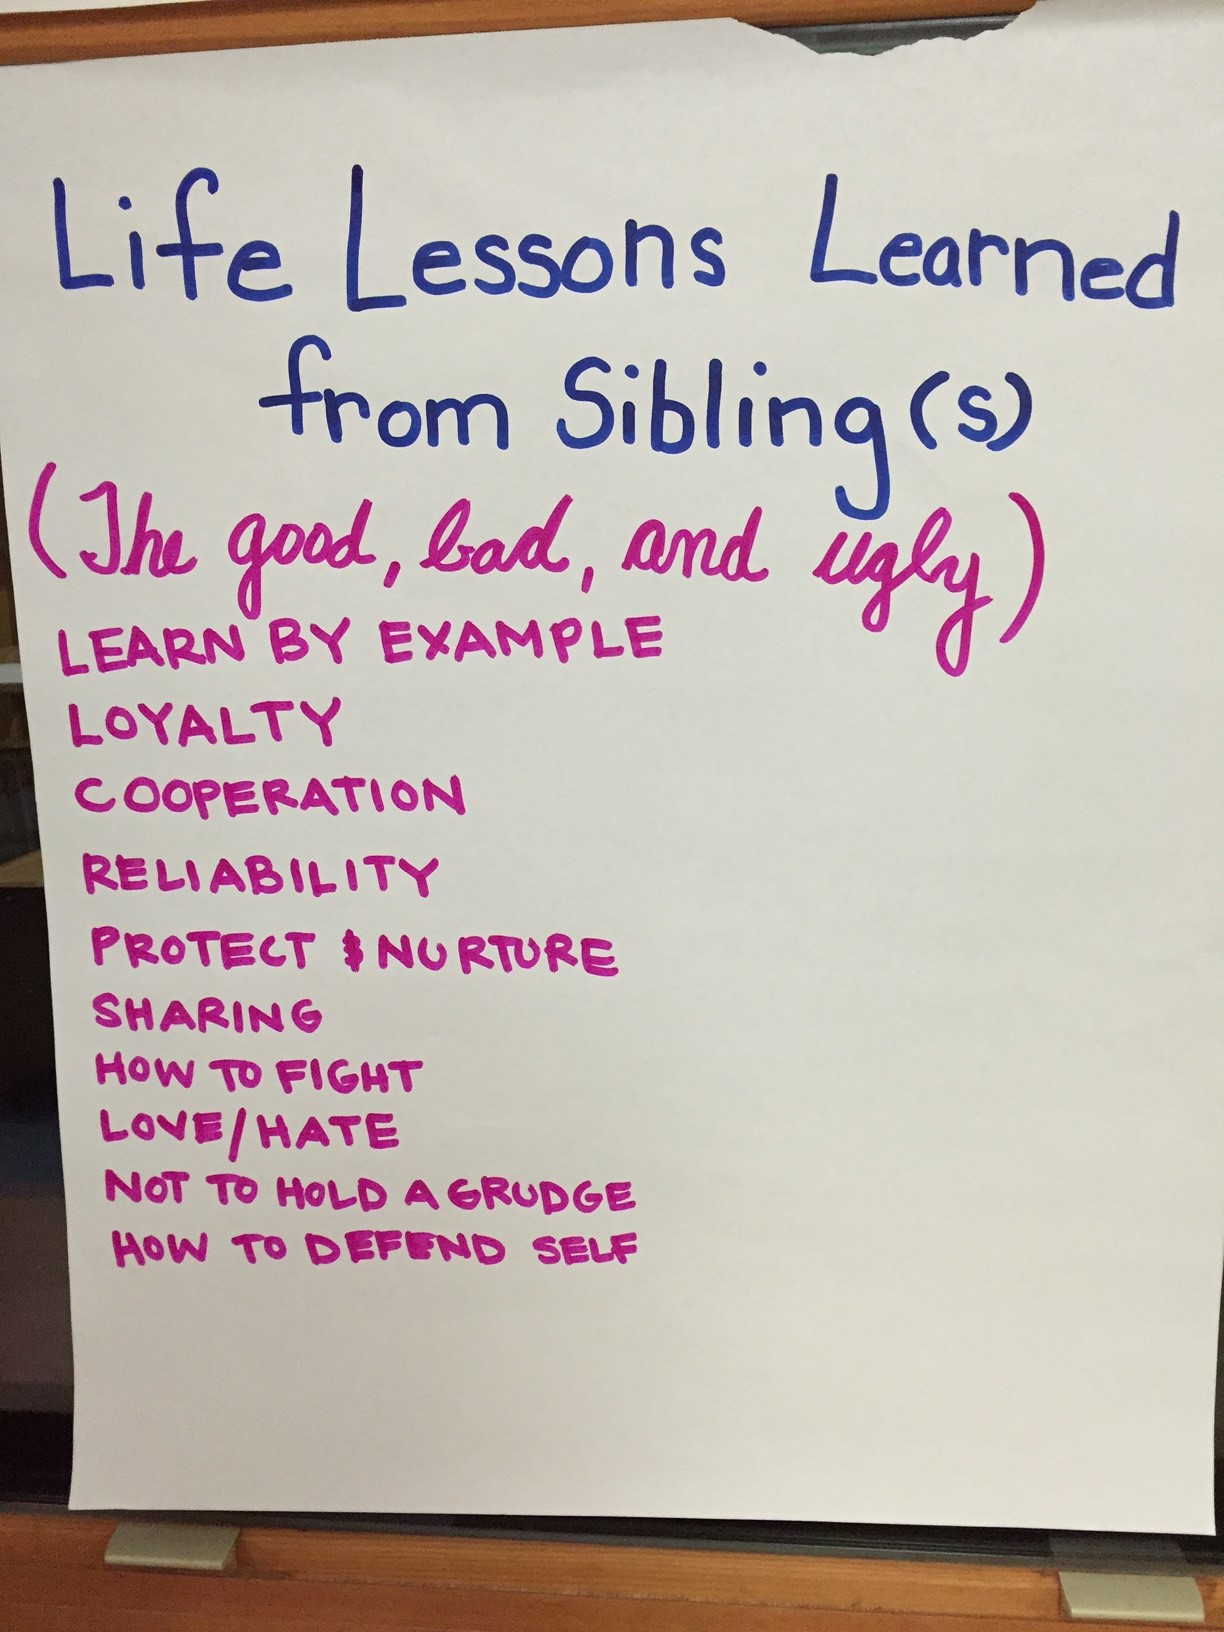 Life Lessons Learned
from Sibling(s)
(The good, bad, and ugly)
LEARN BY EXAMPLE
LOYALTY
COOPERATION
RELIABILITY
PROTECT & NURTURE
SHARING
HOW TO FIGHT
LOVE/HATE
NOT TO HOLD A GRUDGE
HOW TO DEFEND SELF